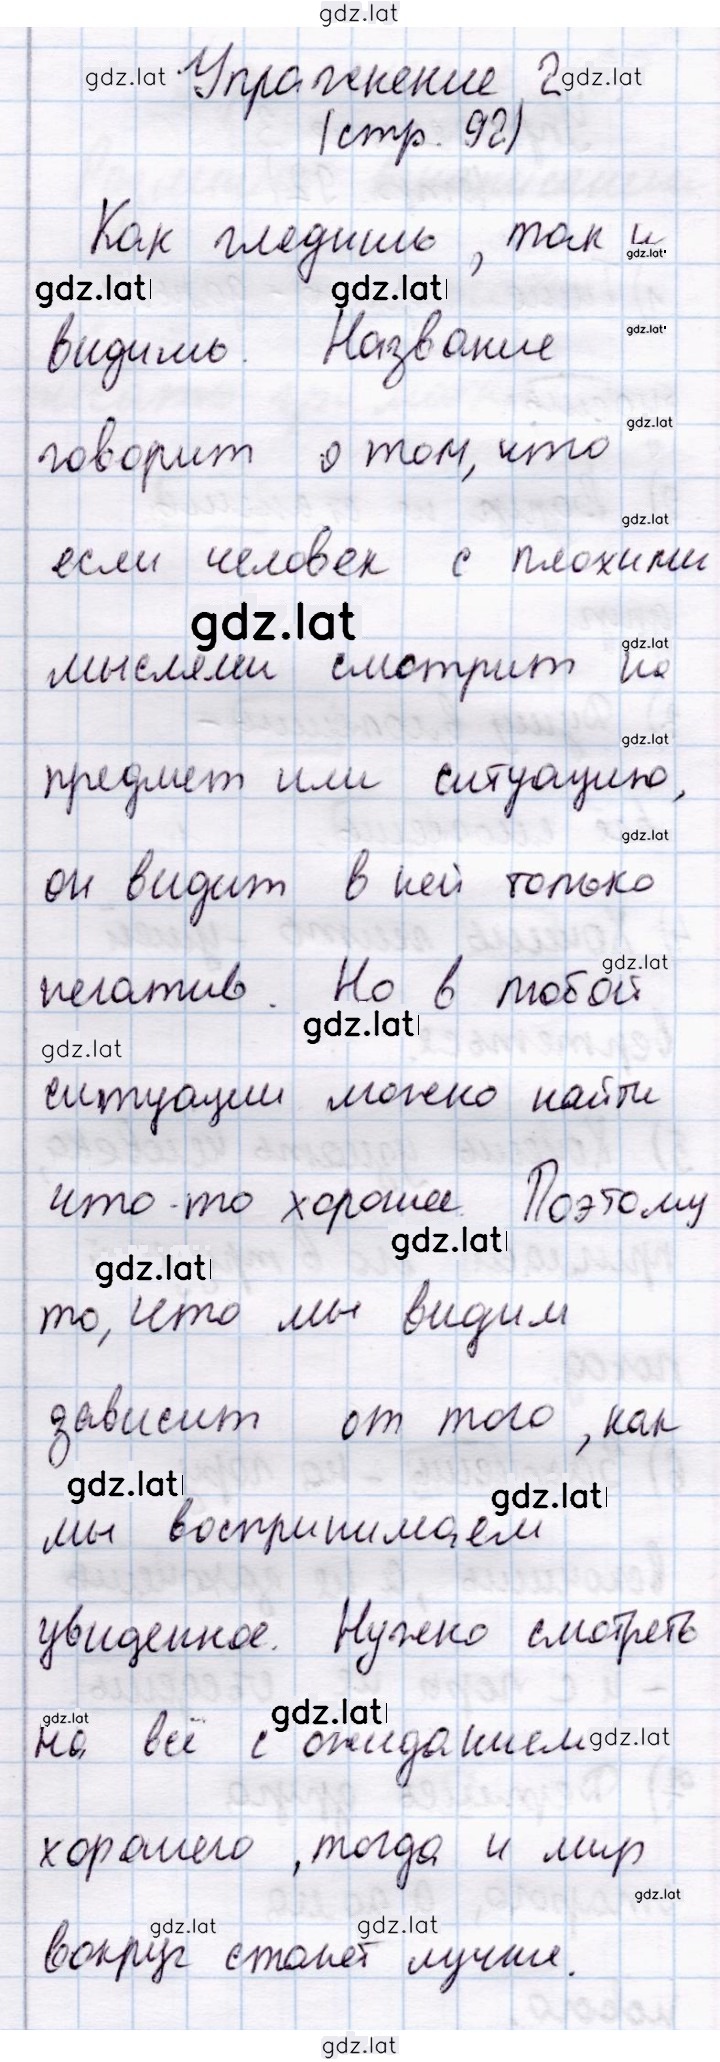 gdz.lat
gdz.lat Упражнение 2 gdz.lat
(стр. 92)
Как глядишь, так и
gdz.lat
gdz.lat gdz.lat
видишь. Название
gdz.lat
говорит о том, что
gdz.lat
gdz.lat
если человек с плохими
gdz.lat
gdz.lat
мыслями смотрит на
gdz.lat
предмет или ситуацию,
gdz.lat
он видит в ней только
gdz.lat
негатив. Но в любой
gdz.lat
gdz.lat
ситуации можно найти
что-то хорошее. Поэтому
gdz.lat
gdz.lat
то, что мы видим
зависит от того, как
gdz.lat
gdz.lat
мы воспринимаем
увиденное. Нужно смотреть
gdz.lat gdz.lat
на всё с ожиданием gdz.lat
хорошего, тогда и мир
gdz.lat
gdz.lat gdz.lat
вокруг станет лучше.
gdz.lat